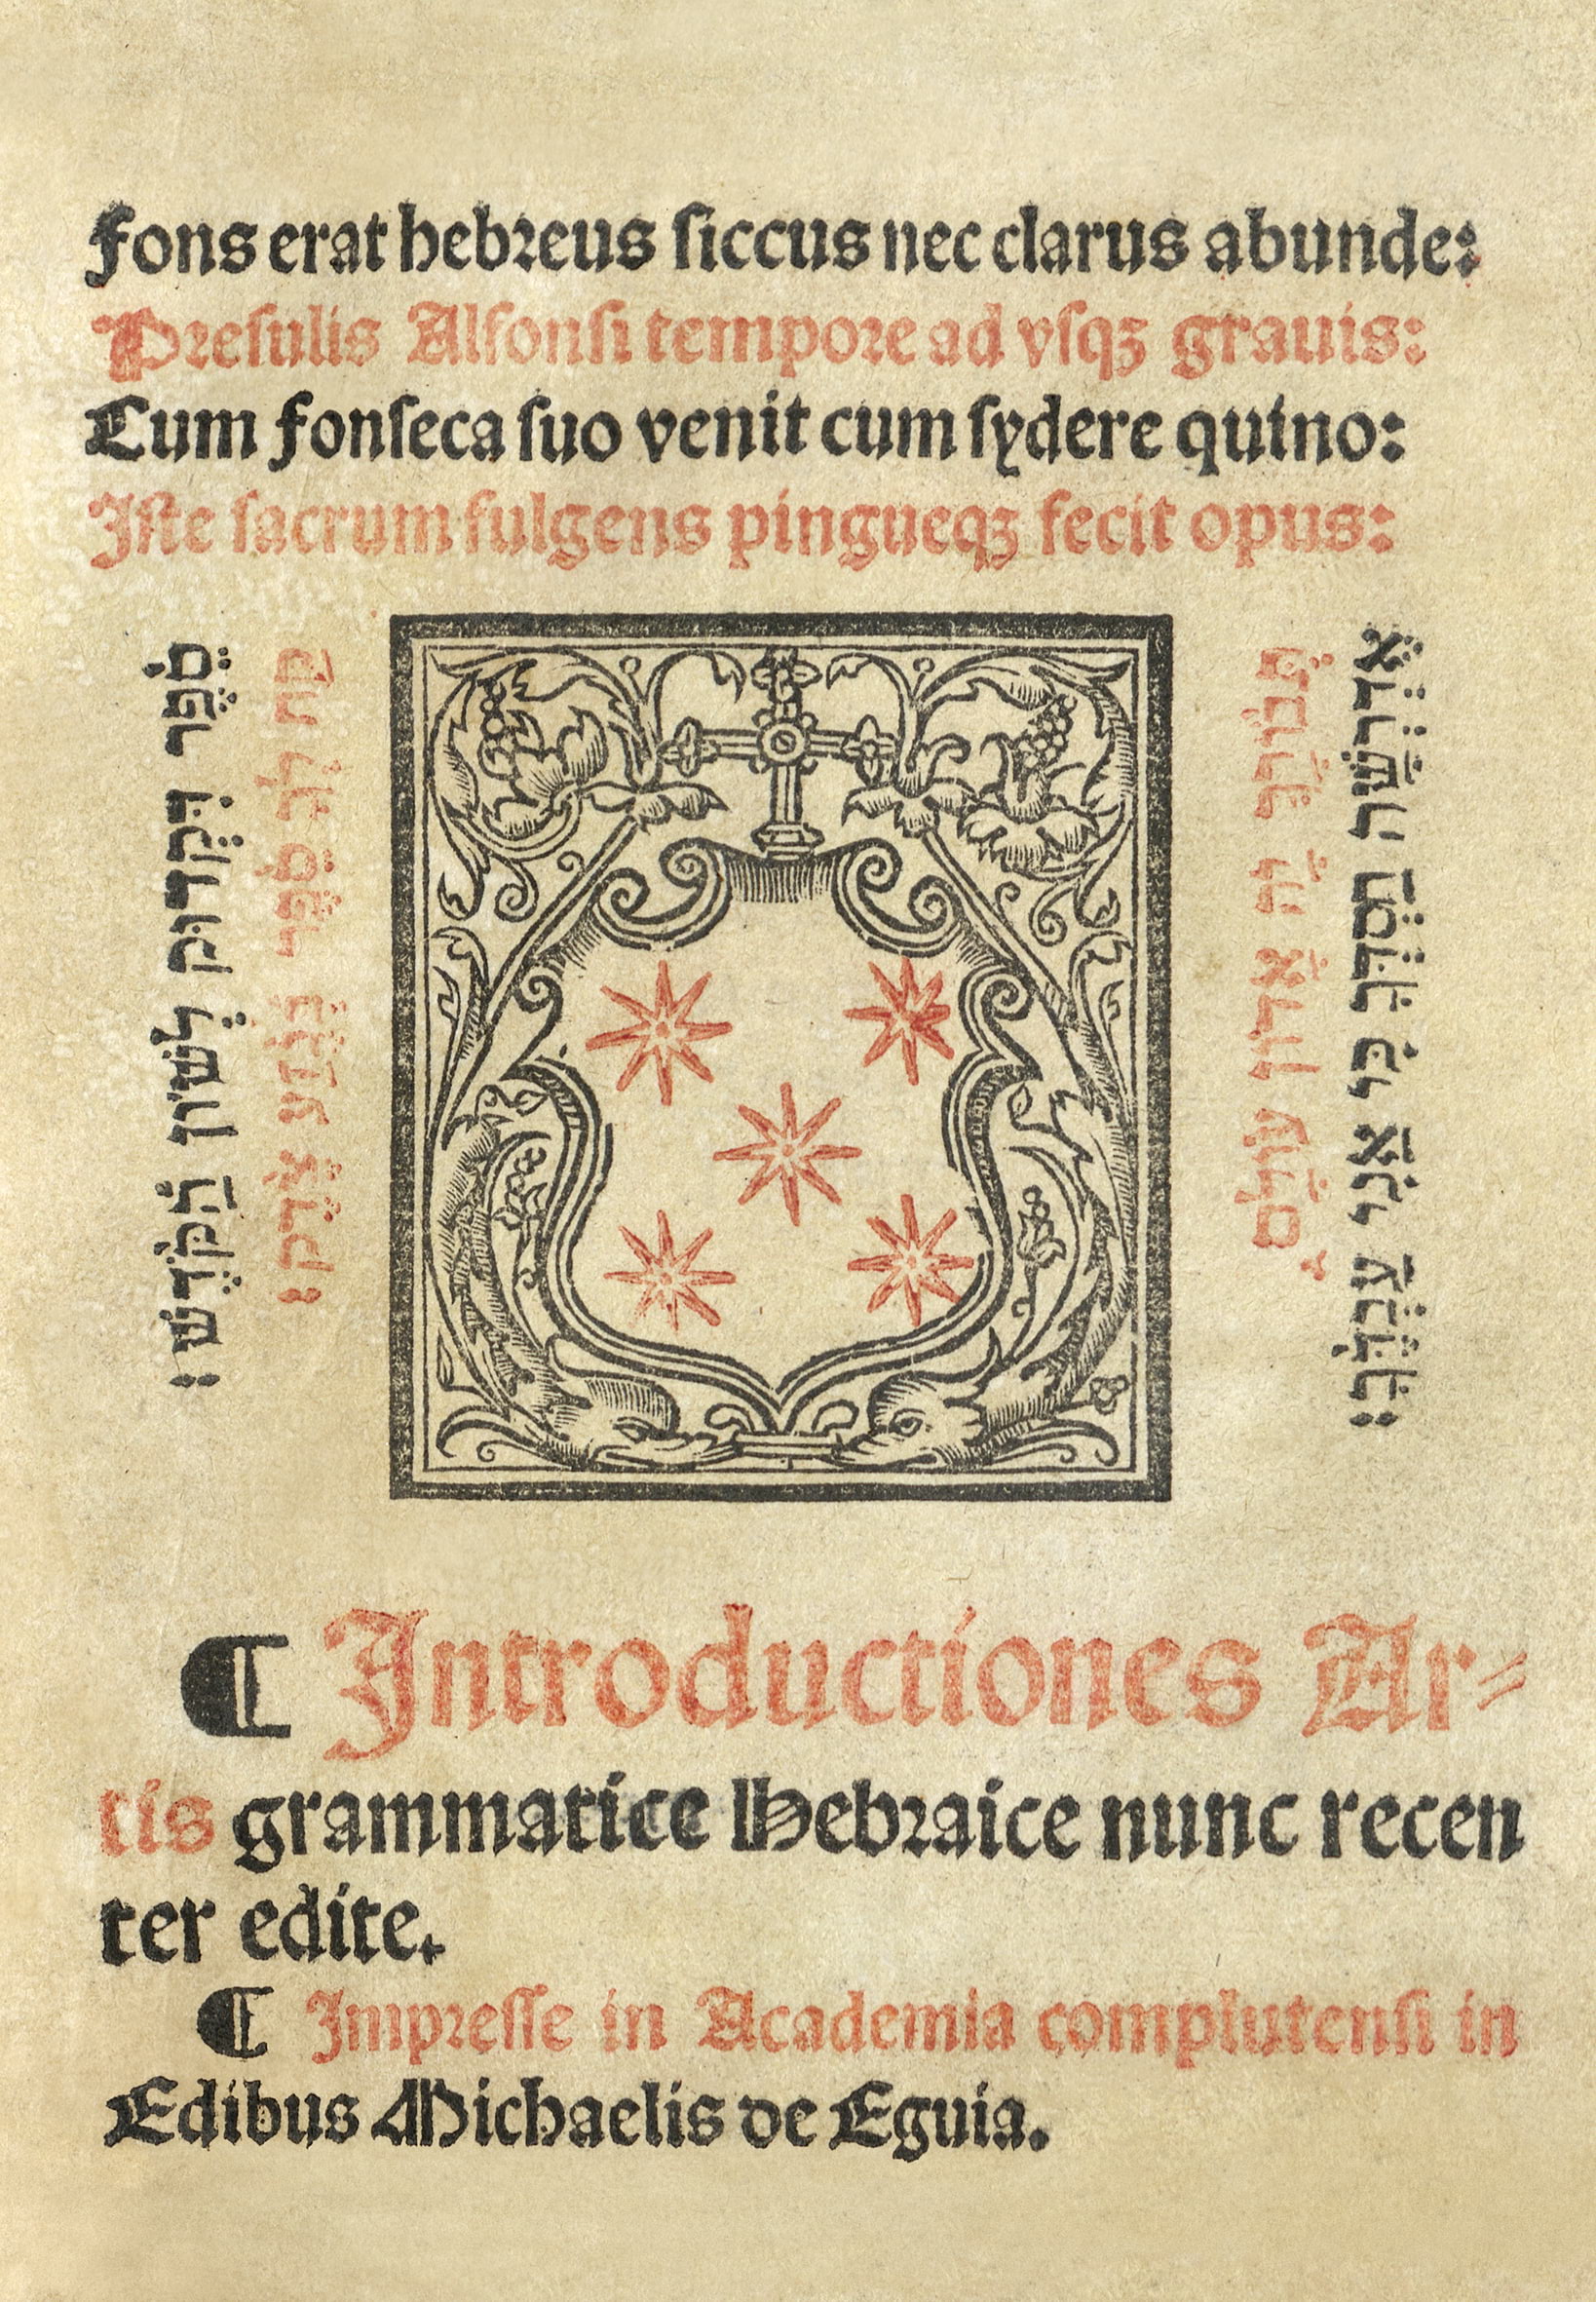 Fons erat hebreus ſiccus nec clarus abunde:
Preſulis Alfonſi tempore ad vſqꝫ grauis:
Tum fonſeca ſuo venit cum ſydere quino:
Iſte ſacrum fulgens pingueqꝫ fecit opus:
סֵפֶר דִּקְדוּק לְשׁוֹן הַקֹּדֶשׁ׃
קַח לְךָ סֵפֶר צֶדֶק׃
אֲדוֹן עוֹלָם
אֶדְרְשָׁה חַסְדְּךָ כִּי אֲנִי עַבְדֶּךָ׃
¶ Introductiones Ar⸗
tis grammatice Hebraice nunc recen
ter edite.
¶ Impreſſe in Academia complutenſi in
Edibus Michaelis de Eguia.